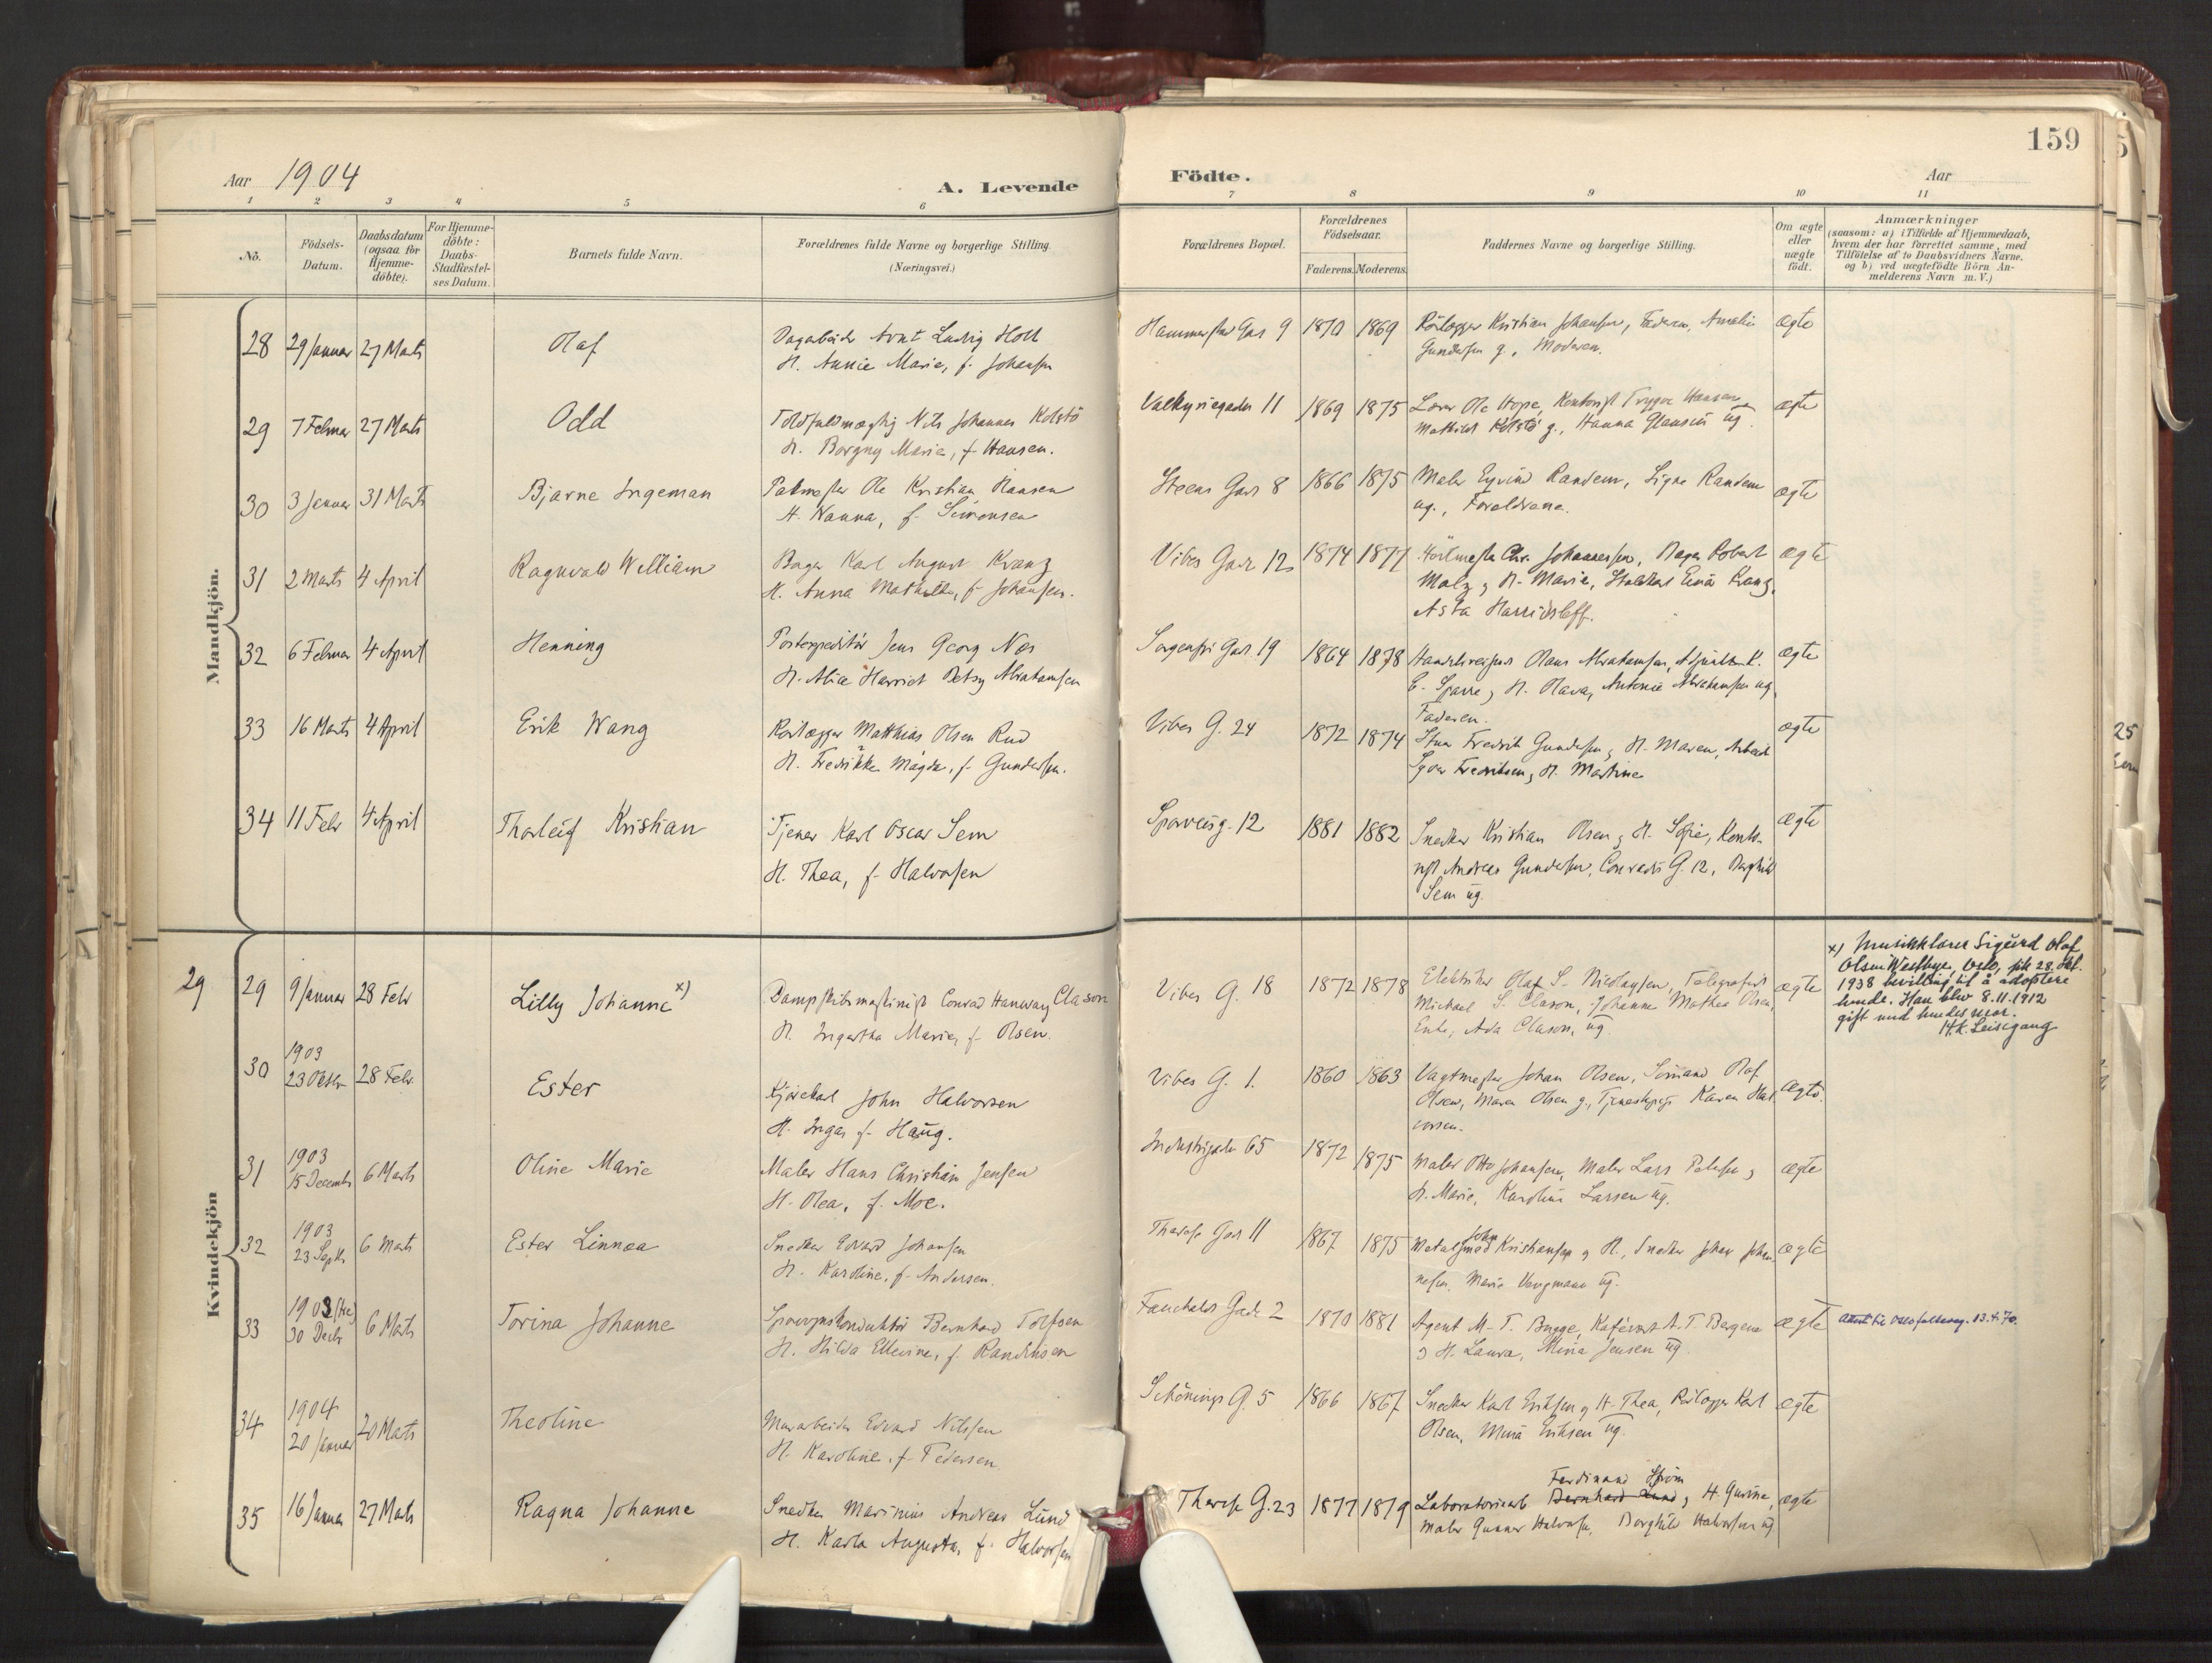 159
Aar 1904
A. Levende
Födte.
Aar
1 2 3 4 5 6 7 8 9 10 11
No.
Födsels-
Datum.
Daabsdatum
(ogsaa for
Hjemme-
döbte).
For Hjemme-
döbte:
Daabs-
Stadfæstel-
ses Datum.
Barnets fulde Navn.
Forældrenes fulde Navne og borgerlige Stilling
(Næringsvei.)
Forældrenes Bopæl.
Forældrenes
Födselsaar.
Faderens. Moderens.
Faddernes Navne og borgerlige Stilling.
Om ægte
eller
uægte
födt.
Anmærkninger
(saasom: a) i Tilfælde af Hjemmedaab,
hvem der har forrettet samme, med
Tilföielse af to Daabsvidners Navne.
og b) ved uægtefödte Börn An-
melderens Navn m.V.)
Mandkjön.
28 29 Januar 27 Marts Olaf
Arnt Ludvig Holt
H. Annie Marie, f. Johansen
9 1870 1869
Rörlægger Kristian Johansen, Faderen, Amalie
Gundersen g., Moderen.
ægte
29 7 Februar 27 Marts Odd
Toldfuldmægtig Nils Johannes Kolstö
H. Borgny Marie, f. Hansen.
Valkyriegaden 11 1869 1875
Lærer Ole Hope, Kontorist Trygve Hansen
Mathilde Kolstö g., Hanna ug.
ægte
30 3 Januar 31 Marts Bjarne Ingeman
Ole Kristian Hansen
H. Nanna, f. Simonsen
Steens Gade 8 1866 1875
Maler Eyvind Randem, Signe Randem
ug., Forældrene.
ægte
31 2 Marts 4 April Ragnvald William
Bager Karl August Kranz
H. Anna Mathilde, f. Johansen.
Vibes Gade 12 1874 1877
Chr. Johannessen, Bager Robert
Malz & H. Marie, Einar Kranz,
Asta
ægte
32 6 Februar 4 April Henning
Postexpeditör Jens Georg Næs
H. Alice Harriet Betsy Abrahamsen
Sorgenfri Gade 19 1864 1878
Handelsreisende Olaus Abrahamsen, K.
E. Sparre & H. Olava, Antonie Abrahamsen ug,
Faderen.
ægte
33 16 Marts 4 April Erik Wang
Rörlægger Matthias Olsen Rud
H. Fredrikke Magda, f. Gundersen.
Vibes G. 24 1872 1874
Fredrik Gundersen & H. Maren, Arbeid.
Syver Fredriksen & H. Martine
ægte
34 11 Febr 4 April Thorleif Kristian
Tjener Karl Oscar Sem
H. Thea, f. Halvorsen
Sporveisg. 12 1881 1882
Snedker Kristian Olsen & H. Sofie, Konto-
rist Andreas Gundersen, Conradis G. 12,
Sem ug.
ægte
Kvindekjön
29 29 9 Januar 28 Febr Lilly Johanne x)
Dampskibsmaskinist Conrad Hanway Clason
H. Ingartha Marie, f. Olsen.
Vibes G. 18 1872 1878
Elektriker Olaf S. Nicolaysen, Telegrafist
Michael S. Clason, Johanne Mathea Olsen,
Enke, Ada Clason, ug.
ægte
x) Musikklærer Sigurd Olaf
Olsen Westbye, Oslo, fik 28. okt.
1938 bevilling til å adoptere
hende. Han blev 8.11.1912
gift med hendes mor.
H.K. Leisegang
30 1903
23 Oktbr 28 Febr. Ester
Kjörekarl John Halvorsen
H. Inga, f. Haug.
Vibes G. 1. 1860 1863
Vagtmester Johan Olsen, Sömand Olaf
Olsen, Maren Olsen g., Tjenestepige Karen Hal-
vorsen.
ægte.
31 1903
15 Decembr 6 Marts Oline Marie
Maler Hans Christian Jensen
H. Olea, f. Moe.
Industrigaden 65 1872 1875
Maler Otto Johansen, Maler Lars &
H. Marie, Karoline Larsen ug.
ægte
32 1903
23 Septbr 6 Marts Ester Linnea
Snedker Edvard Johansen
H. Karoline, f. Andersen.
Therese Gade 11 1867 1875
Metalsmed John Kristiansen & H., Snedker Johan Johan-
nesen, Marie Vangmann ug.
ægte
33 1903 (tre)
30 Decbr 6 Marts Torina Johanne
Sporvognskonduktör Bernhard Tolfsen
H. Hilda Ellevine, f.
Fauchalds Gade 2 1870 1881
Agent M. T. Bugge, A. T. Bergene
& H. Laura, Mina Jensen ug.
ægte
Attest til Oslo folkereg. 13.4.70.
34 1904
20 Januar 20 Marts Theoline
Murarbeider Edvard Nilssen
H. Karoline, f. Pedersen
Schönings G. 5 1866 1867
Snedker Karl Eriksen & H. Thea, Rörlægger Karl
Olsen, Mina Eriksen ug.
ægte
35 16 Januar 27 Marts Ragna Johanne
Snedker Marinius Andreas Lund
H. Karla Augusta, f. Halvorsen
Therese G. 23 1877 1879
Ferdinand Ström
Laboratoriearb. Bernhard Lund & H. Gurine,
Maler Gunnar Halvorsen, Borghild Halvorsen ug
ægte
25